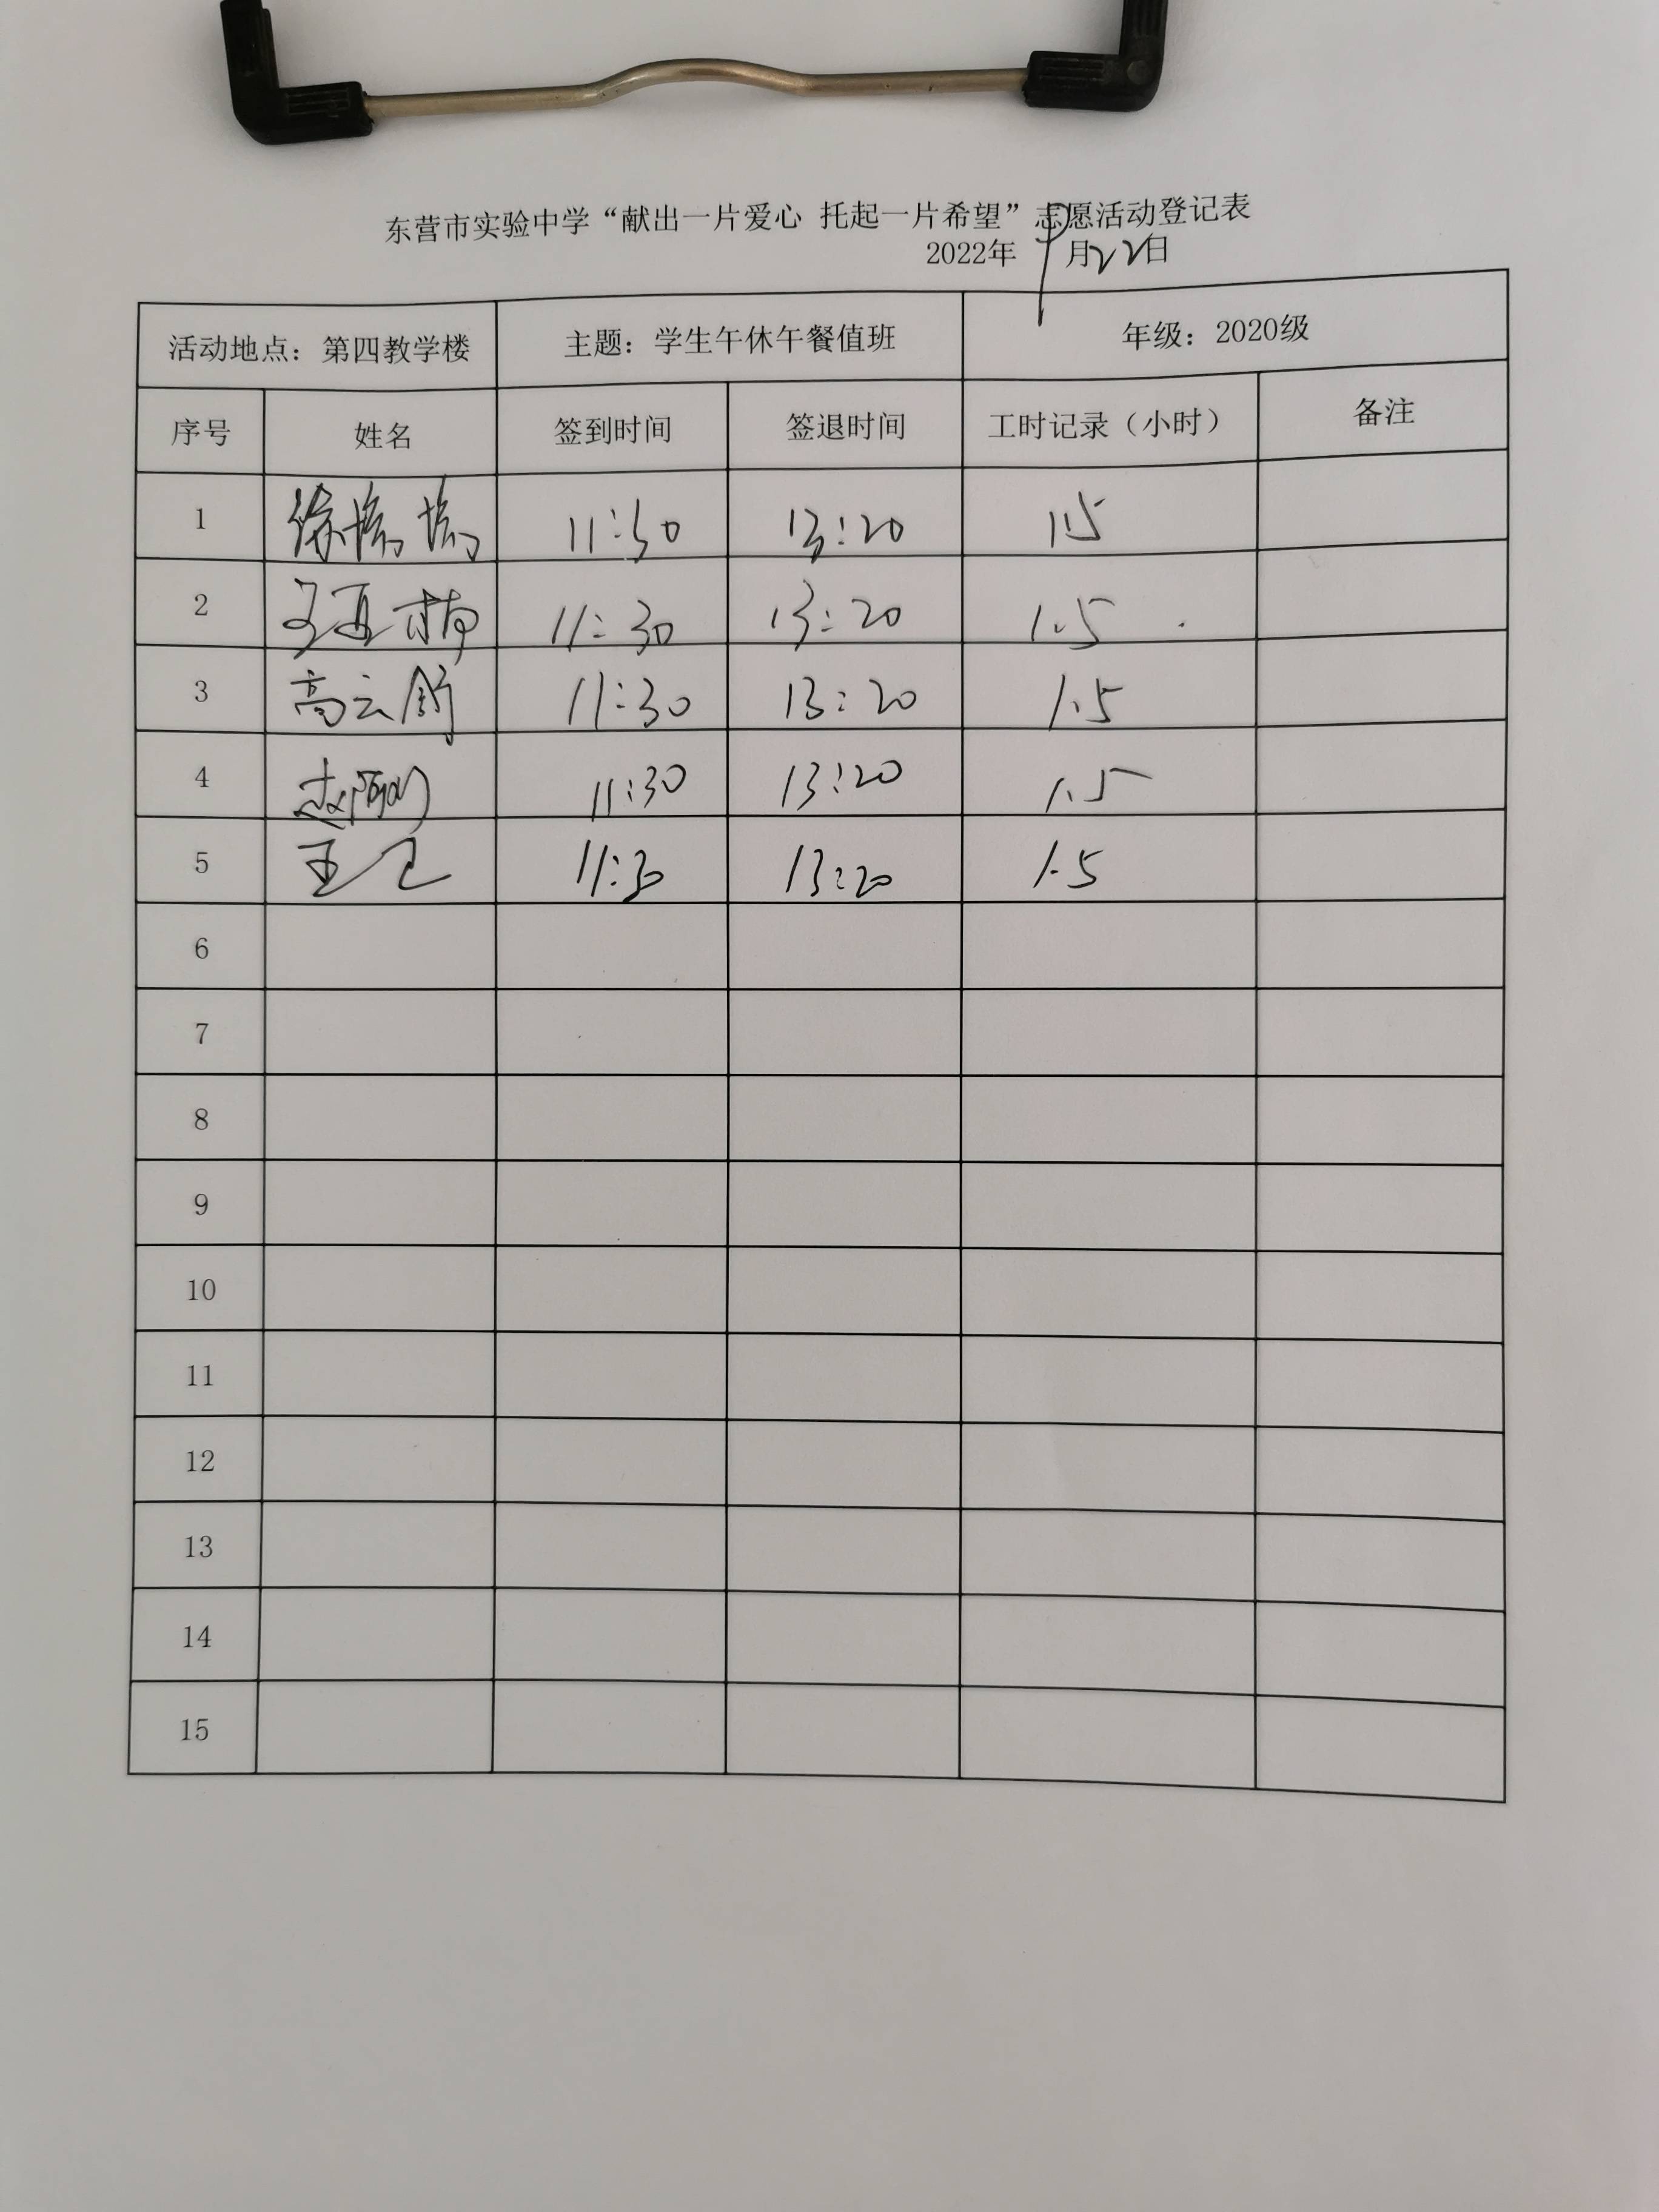 东营市实验中学“献出一片爱心 托起一片希望”志愿活动登记表
2022年 9月22日
活动地点：第四教学楼 主题：学生午休午餐值班 年级：2020级
序号 姓名 签到时间 签退时间 工时记录（小时） 备注
1 徐 11:30 13:20 1.5
2 11:30 13:20 1.5
3 高云舒 11:30 13:20 1.5
4 赵 11:30 13:20 1.5
5 王 11:30 13:20 1.5
6
7
8
9
10
11
12
13
14
15